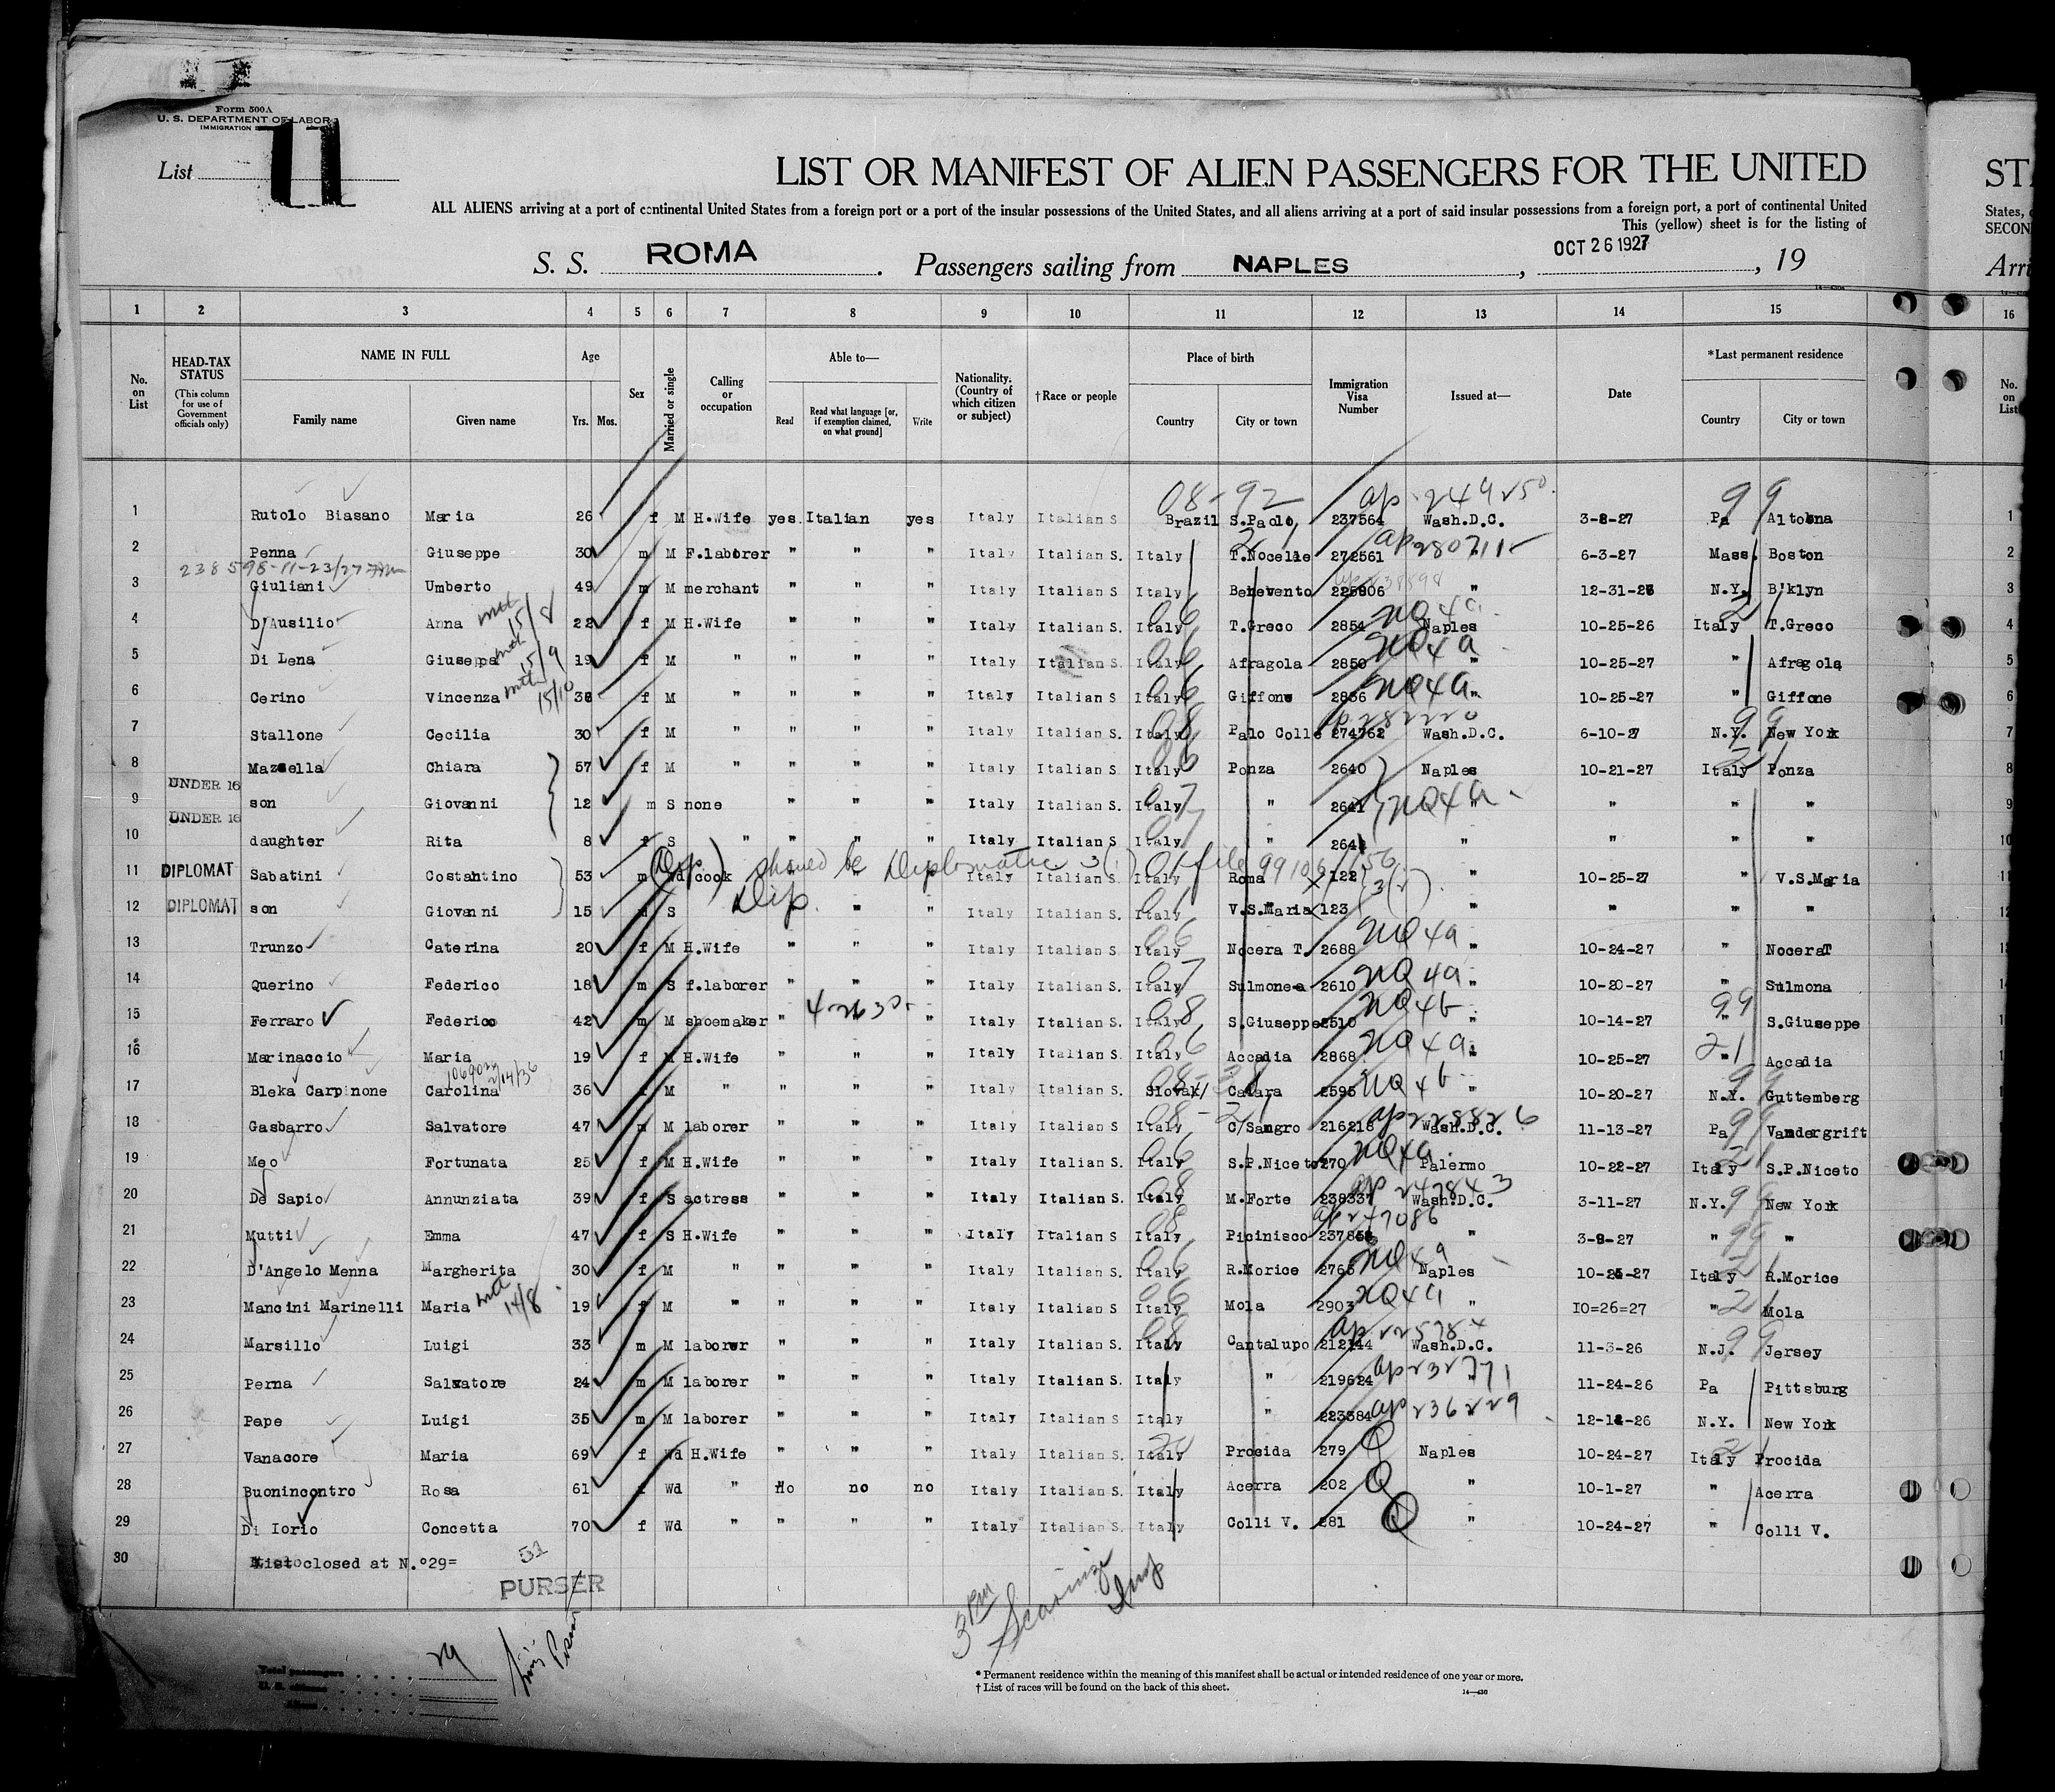 Form 500A
U. S. DEPARTMENT OF LABOR
IMMIGRATION
List 11
LIST OR MANIFEST OF ALIEN PASSENGERS FOR THE UNITED
ALL ALIENS arriving at a port of continental United States from a foreign port or a port of the insular possessions of the United States, and all aliens arriving at a port of said insular possessions from a foreign port, a port of continental United
This (yellow) sheet is for the listing of
S. S. ROMA. Passengers sailing from NAPLES, OCT 26 1927, 19
1 2 3 4 5 6 7 8 9 10 11 12 13 14 15 16
No. on List
HEAD-TAX STATUS (This column for use of Government officials only)
NAME IN FULL Family name Given name
Age Yrs. Mos.
Sex
Married or single
Calling or occupation
Able to— Read Read what language [or, if exemption claimed, on what ground] Write
Nationality. (Country of which citizen or subject)
†Race or people
Place of birth Country City or town
Immigration Visa Number
Issued at—
Date
*Last permanent residence Country City or town
No. on List
08-92 ap-249250 99
1 Rutolo Biasano Maria 26 f M H.Wife yes Italian yes Italy Italian S Brazil S.Paolo 237564 Wash.D.C. 3-8-27 Pa Altoona 1
2 Penna Giuseppe 30 m M F.laborer " " " Italy Italian S. Italy T.Nocelle 272561 " 6-3-27 Mass. Boston 2
238598-11-23/27
3 Giuliani Umberto 49 m M merchant " " " Italy Italian S Italy Benevento 225806 " 12-31-26 N.Y. B'klyn 3
4 D'Ausilio Anna 22 f M H.Wife " " " Italy Italian S. Italy T.Greco 2854 NQ4a Naples 10-25-26 Italy T.Greco 4
5 Di Lena Giuseppa 19 f M " " " " Italy Italian S. Italy Afragola 2850 NQ4a " 10-25-27 " Afragola 5
6 Cerino Vincenza 36 f M " " " " Italy Italian S Italy Giffone 2836 NQ4a " 10-25-27 " Giffone 6
7 Stallone Cecilia 30 f M " " " " Italy Italian S. Italy Palo Colle 274762 Wash.D.C. 6-10-27 N.Y. New York 7
8 Mazzella Chiara 57 f M " " " " Italy Italian S Italy Ponza 2640 Naples 10-21-27 Italy Ponza 8
UNDER 16
9 son Giovanni 12 m S none " " " Italy Italian S. Italy " 2641 NQ4a " " " " 9
UNDER 16
10 daughter Rita 8 f S " " " " Italy Italian S Italy " 2642 " " " " 10
Dip should be Diplomatic 3(1) file 99106/156
11 DIPLOMAT Sabatini Costantino 53 m Wd cook " " Italy Italian S. Italy Roma 122 " 10-25-27 " V.S.Maria 11
12 DIPLOMAT son Giovanni 15 m S Dip. " " Italy Italian S. Italy V.S.Maria 123 " " " " 12
13 Trunzo Caterina 20 f M H.Wife " " " Italy Italian S. Italy Nocera T. 2688 NQ4a " 10-24-27 " Nocera T 13
14 Querino Federico 18 m S f.laborer " " " Italy Italian S. Italy Sulmonea 2610 NQ4a " 10-20-27 " Sulmona 14
15 Ferraro Federico 42 m M shoemaker " " Italy Italian S. Italy S.Giuseppe 2510 NQ4b " 10-14-27 " S.Giuseppe
16 Marinaccio Maria 19 f M H.Wife " " " Italy Italian S. Italy Accadia 2868 NQ4a " 10-25-27 " Accadia
17 Bleka Carpinone Carolina 36 f M " " " " Italy Italian S. Slovak/ Calara 2595 NQ4b " 10-20-27 N.Y. Guttemberg
18 Gasbarro Salvatore 47 m M laborer " " " Italy Italian S Italy C/Sangro 216218 ap228826 Wash.D.C. 11-13-27 Pa Vandergrift
19 Meo Fortunata 25 f M H.Wife " " " Italy Italian S. Italy S.P.Niceto 270 NQ4a Palermo 10-22-27 Italy S.P.Niceto
20 De Sapio Annunziata 39 f S actress " " " Italy Italian S. Italy M.Forte 238337 ap 247843 Wash.D.C. 3-11-27 N.Y. New York
21 Mutti Emma 47 f S H.Wife " " " Italy Italian S Italy Picinisco ap247086 " 3-9-27 " "
22 D'Angelo Menna Margherita 30 f M " " " " Italy Italian S. Italy R.Morice 2765 NQ4a Naples 10-25-27 Italy R.Morice
23 Mancini Marinelli Maria 19 f M " " " " Italy Italian S Italy Mola 2903 NQ4a " 10=26=27 " Mola
24 Marsillo Luigi 33 m M laborer " " " Italy Italian S. Italy Cantalupo 212144 ap225784 Wash.D.C. 11-3-26 N.J. Jersey
25 Perna Salvatore 24 m M laborer " " " Italy Italian S. Italy " 219624 ap232771 " 11-24-26 Pa Pittsburg
26 Pepe Luigi 35 m M laborer " " " Italy Italian S Italy " 223384 ap236229 12-18-26 N.Y. New York
27 Vanacore Maria 69 f Wd H.Wife " " " Italy Italian S. Italy Procida 279 Q Naples 10-24-27 Italy Procida
28 Buonincontro Rosa 61 f Wd " No no no Italy Italian S. Italy Acerra 202 Q " 10-1-27 " Acerra
29 Di Iorio Concetta 70 f Wd " " " " Italy Italian S. Italy Colli V. 281 Q " 10-24-27 " Colli V.
30 List closed at N.°29=
51
PURSER
3 PM
Insp
Total passengers 29
U. S. citizens
Aliens
* Permanent residence within the meaning of this manifest shall be actual or intended residence of one year or more.
† List of races will be found on the back of this sheet.
14—430